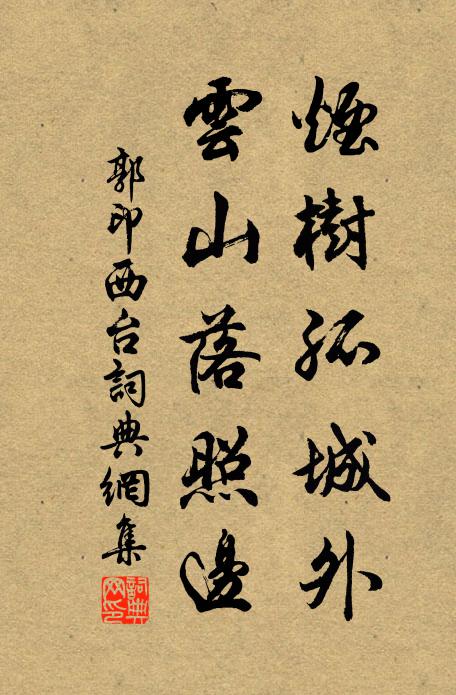 煙樹孤城外
雲山落照邊
郭印西台詞典網集
詞典網印